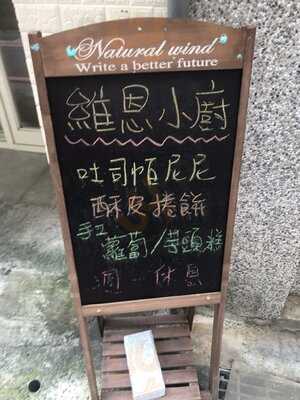 Natural wind
Write a better future
維恩小廚
吐司帕尼尼
酥皮捲餅
手工蘿蔔/芋頭糕
週一休息